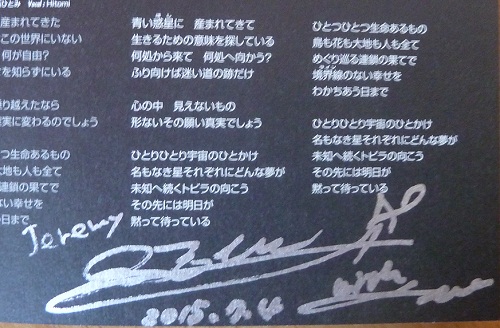 ひとみ Vocal : Hitomi
産まれてきた
この世界にいない
何が自由?
を知らずにいる
り越えたなら
真実に変わるのでしょう
つ生命あるもの
大地も人も全て
連鎖の果てで
ない幸せを
日まで
青い惑星に 産まれてきて
生きるための意味を探している
何処から来て 何処へ向かう?
ふり向けば迷い道の跡だけ
心の中 見えないもの
形ないその願い真実でしょう
ひとりひとり宇宙のひとかけ
名もなき星それぞれにどんな夢が
未知へ続くトビラの向こう
その先には明日が
黙って待っている
ひとつひとつ生命あるもの
鳥も花も大地も人も全て
めぐり巡る連鎖の果てで
境界線のない幸せを
わかちあう日まで
ひとりひとり宇宙のひとかけ
名もなき星それぞれにどんな夢が
未知へ続くトビラの向こう
その先には明日が
黙って待っている
Jeremy
2015.7.4